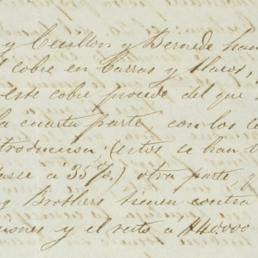 y Cecillon y Bernede han
el cobre en Barras y Slacos,
este cobre procede del que
la cuarta parte, con los
troduccion (estos se han
asse á 35 7/8.) otra parte,
y Brothers tienen contra
iones y el resto á $40000